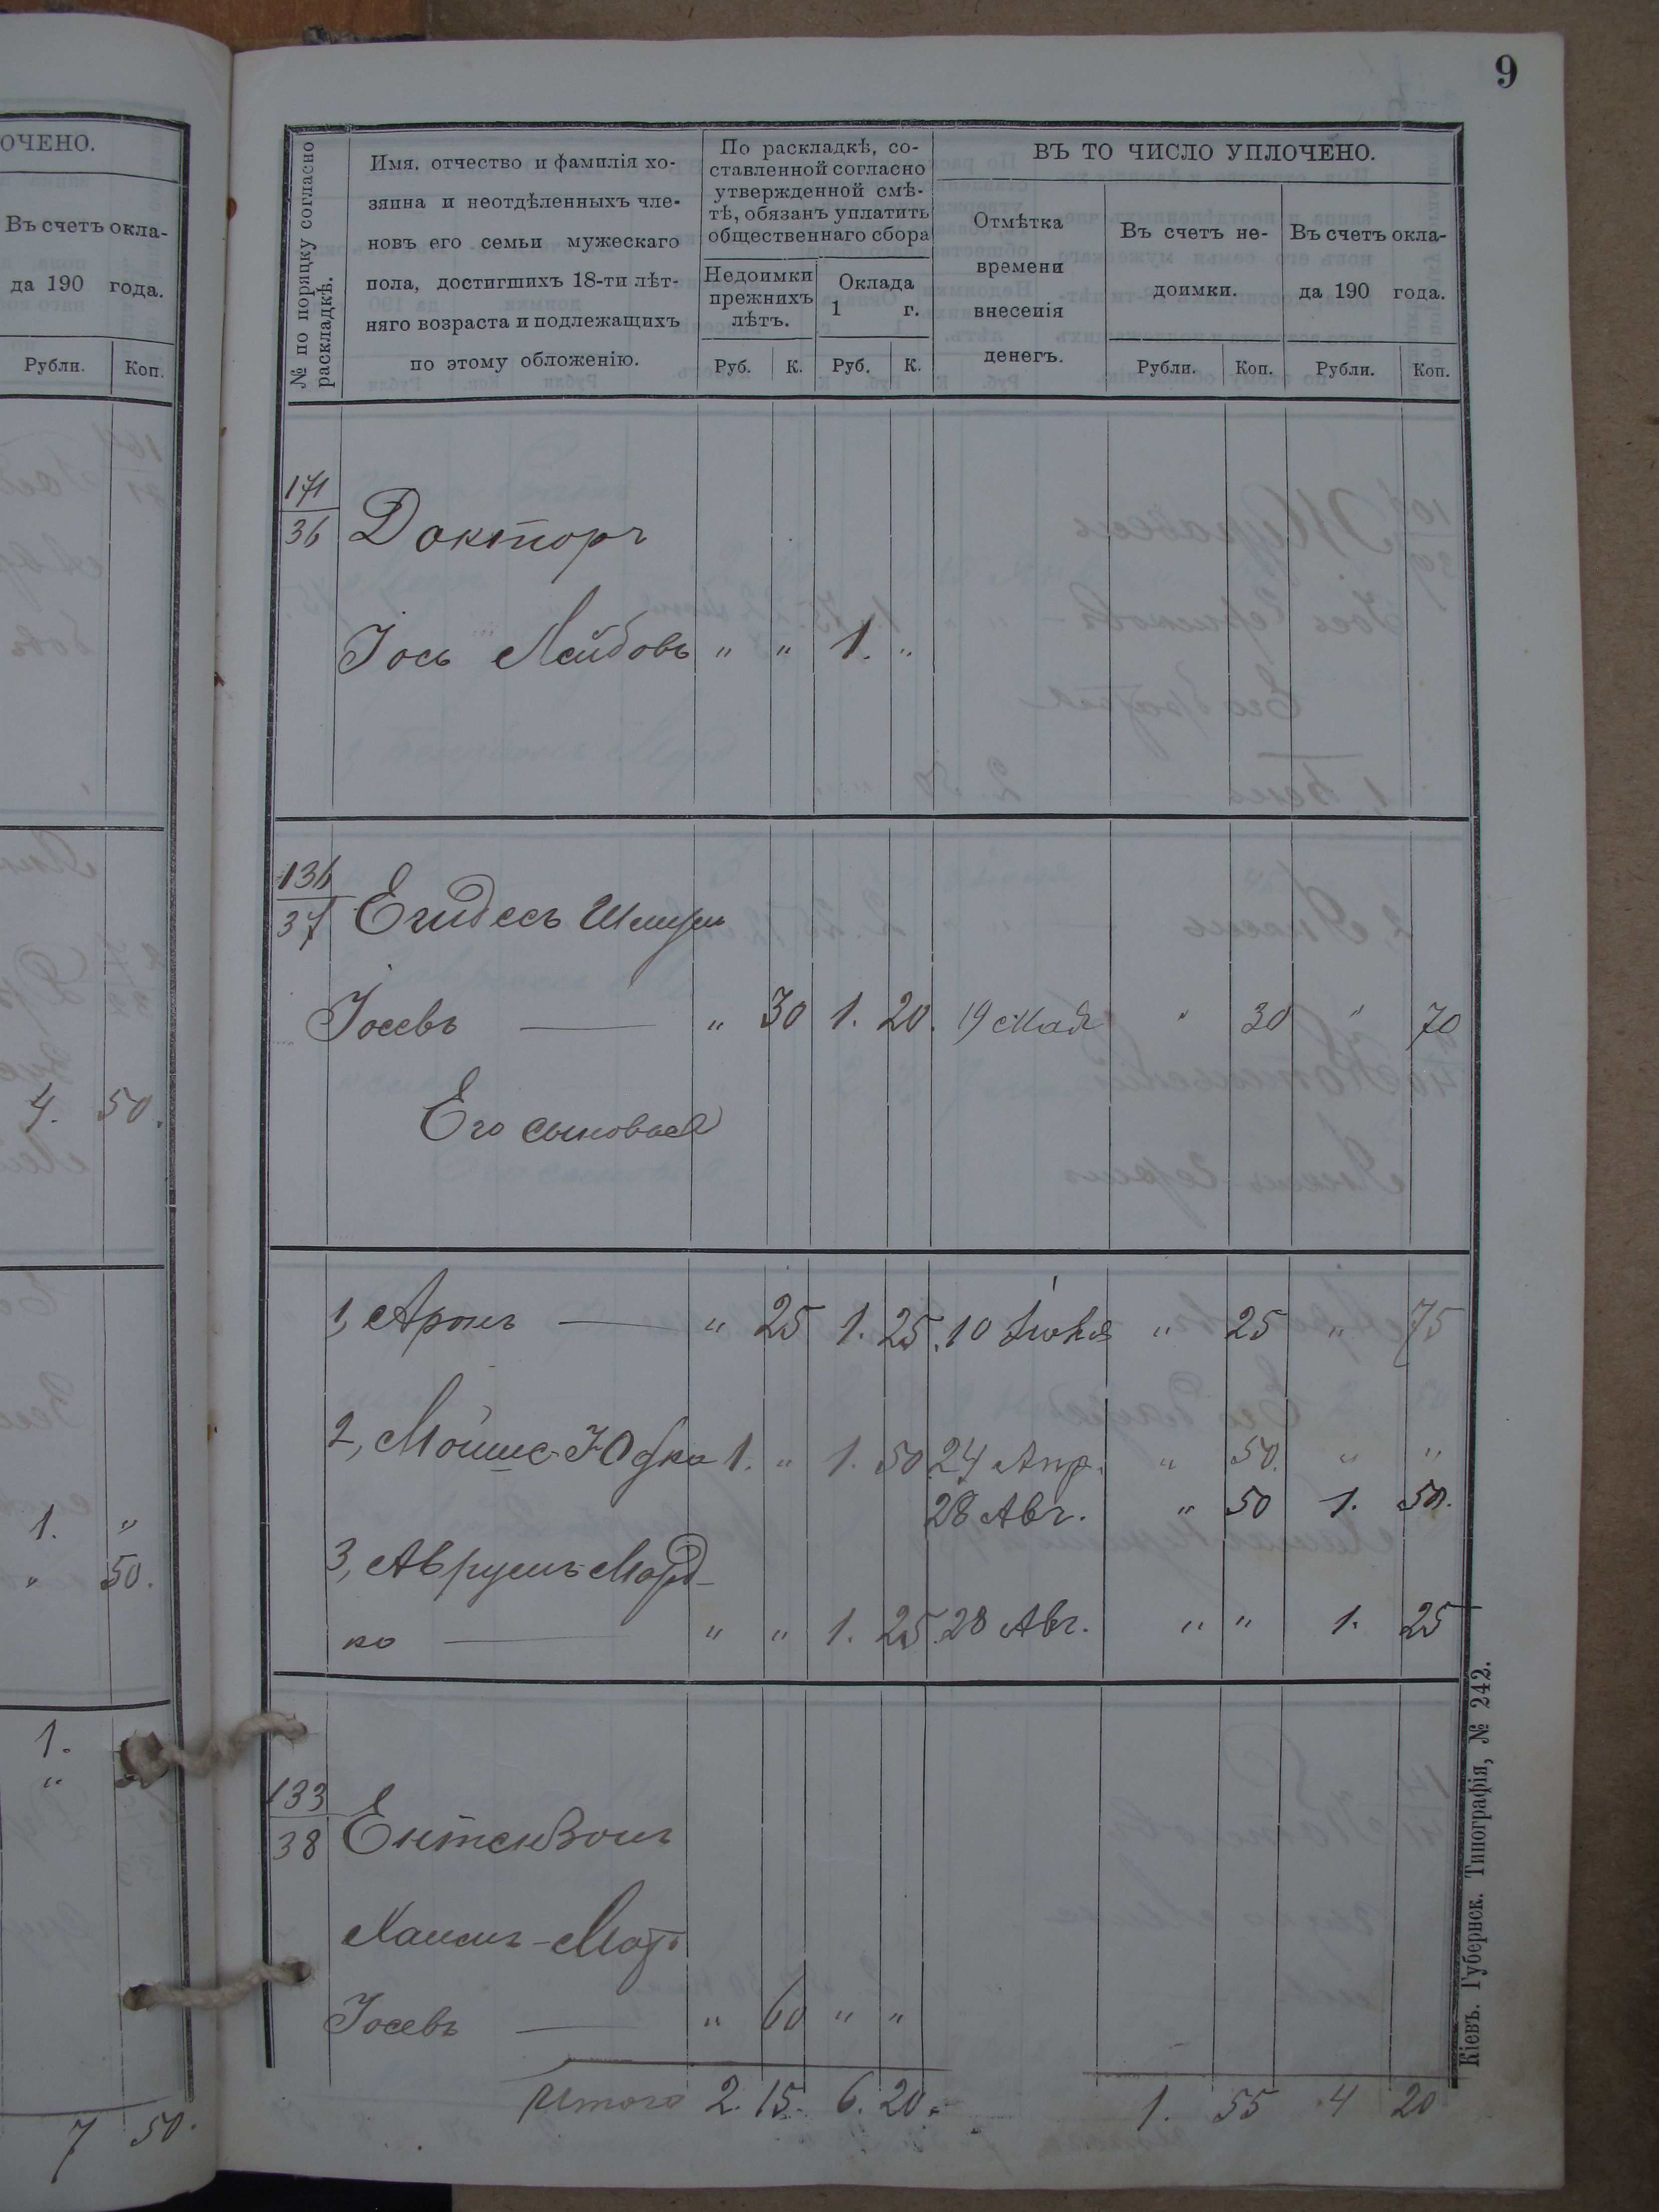 9
ОЧЕНО.
Въ счетъ окла-
да 190 года.
Рубли. Коп.
4. 50.
1. "
" 50.
1.
"
7 50.
№ по порядку согласно
раскладкѣ.
Имя, отчество и фамилія хо-
зяина и неотдѣленныхъ чле-
новъ его семьи мужескаго
пола, достигшихъ 18-ти лѣт-
няго возраста и подлежащихъ
по этому обложенію.
По раскладкѣ, со-
ставленной согласно
утвержденной смѣ-
тѣ, обязанъ уплатить
общественнаго сбора
Недоимки
прежнихъ
лѣтъ.
Оклада
1 г.
Руб. К. Руб. К.
ВЪ ТО ЧИСЛО УПЛОЧЕНО.
Отмѣтка
времени
внесенія
денегъ.
Въ счетъ не-
доимки.
Въ счетъ окла-
да 190 года.
Рубли. Коп. Рубли. Коп.
171
36 Докторъ
Іось Лейбовъ " " 1. "
136
37 Егидесъ Шмуль
Іосевъ — " 30 1. 20. 19 Мая " 30 " 70
Его сыновья
1, Аронъ — " 25 1. 25. 10 Іюня " 25 " 75
2, Мошше-Юдка 1. " 1. 50 24 Апр. " 50. " "
28 Авг. " 50 1. 50.
3, Аврумъ-Морд-
ко — " " 1. 25. 28 Авг. " " 1. 25
133
38 Ентензонъ
Хаимъ-Мот.
Іосевъ — " 60 " "
Итого 2. 15. 6. 20. 1. 55 4 20
Кіевъ. Губернск. Типографія, № 242.